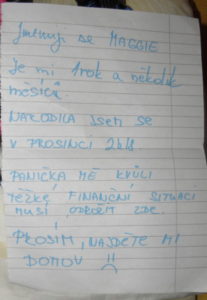 Jmenuji se MAGGIE
Je mi 1rok a několik
měsíců.
NARODILA jsem se
v PROSINCI
PANIČKA MĚ KVŮLI
TĚŽKÉ FINANČNÍ SITUACI
MUSÍ ODLOŽIT ZDE.
PROSÍM, NAJDĚTE MI
DOMOV !!